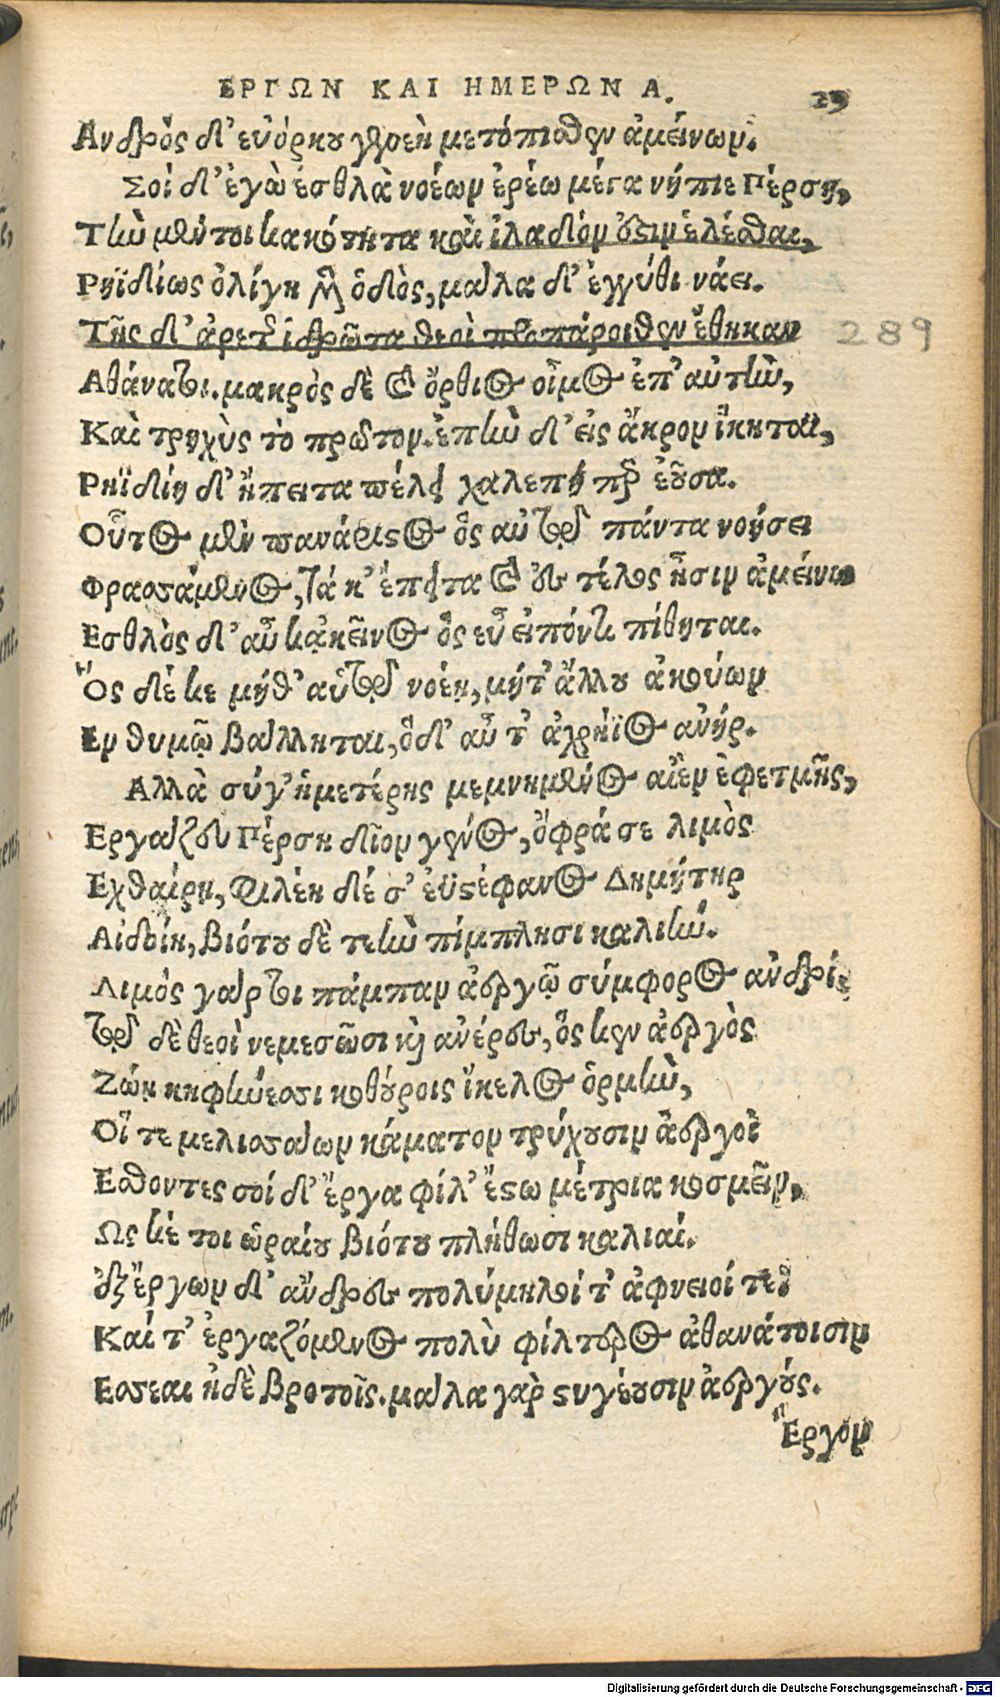 ΕΡΓΩΝ ΚΑΙ ΗΜΕΡΩΝ Α.
29
Ανδρὸς δ' εὐόρκου γενεὴ μετόπισθεν ἀμείνων.
Σοί δ' ἐγὼ ἐσθλὰ νοέων ἐρέω μέγα νήπιε Πέρση,
Τὴν μέν τοι κακότητα καὶ ἰλαδὸν ὅστιν ἑλέσθαι,
Ρηϊδίως ὀλίγη μὲν ὁδὸς, μάλα δ' ἐγγύθι νάει.
Τῆς δ' ἀρετῆς ἱδρῶτα θεοὶ προπάροιθεν ἔθηκαν
289
Αθάνατοι. μακρὸς δὲ καὶ ὄρθιος οἶμος ἐπ' αὐτὴν,
Καὶ τρηχὺς τὸ πρῶτον. ἐπὴν δ' εἰς ἄκρον ἵκηται,
Ρηϊδίη δ' ἤπειτα πέλει χαλεπή περ ἐοῦσα.
Οὗτος μὲν πανάριστος ὃς αὐτῷ πάντα νοήσει
Φρασσάμενος, τά κ' ἔπειτα καὶ ἐς τέλος ᾖσιν ἀμείνω
Εσθλὸς δ' αὖ κἀκεῖνος ὃς εὖ εἰπόντι πίθηται.
Ὃς δέ κε μήθ' αὑτῷ νοέῃ, μήτ' ἄλλου ἀκούων
Εν θυμῷ βάλληται, ὁ δ' αὖ τ' ἀχρήϊος ἀνήρ.
Αλλὰ σύγ' ἡμετέρης μεμνημένος αἰὲν ἐφετμῆς,
Εργάζευ Πέρση δῖον γένος, ὄφρά σε λιμὸς
Εχθαίρῃ, φιλέῃ δέ σ' ἐϋστέφανος Δημήτηρ
Αἰδοίη, βιότου δὲ τεὴν πίμπλησι καλιήν.
Λιμὸς γάρ τοι πάμπαν ἀεργῷ σύμφορος ἀνδρί.
Τῷ δὲ θεοὶ νεμεσῶσι καὶ ἀνέρες, ὅς κεν ἀεργὸς
Ζώῃ κηφήνεσσι κοθούροις ἴκελος ὁρμὴν,
Οἵ τε μελισσάων κάματον τρύχουσιν ἀεργοὶ
Εσθοντες σοί δ' ἔργα φίλ' ἔστω μέτρια κοσμεῖν,
Ως κέ τοι ὡραίου βιότου πλήθωσι καλιαί.
Ἐξ ἔργων δ' ἄνδρες πολύμηλοί τ' ἀφνειοί τε.
Καί τ' ἐργαζόμενος πολὺ φίλτερος ἀθανάτοισιν
Εσσεαι ἠδὲ βροτοῖς. μάλα γὰρ στυγέουσιν ἀεργούς.
Ἔργον
Digitalisierung gefördert durch die Deutsche Forschungsgemeinschaft - DFG